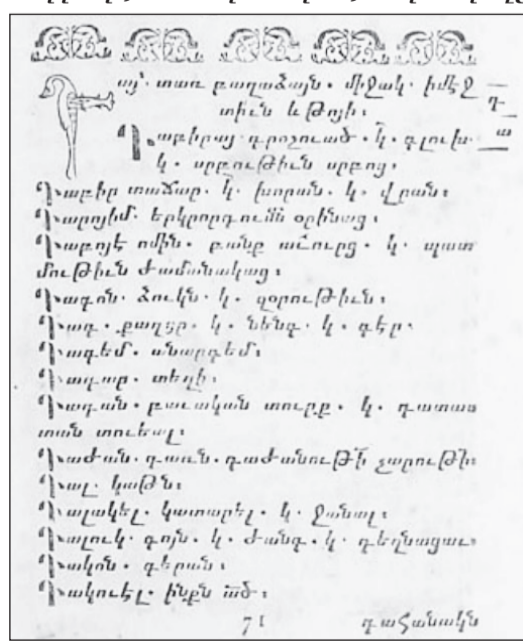 Դայ՝ տառ բաղաձայն. միջակ. իմէջ
տիւն և թոյի։
Դ
ա
Դաբիրայ. դրոշուած. կ. գլուխ.
կ. սրբութիւն սրբոց.
Դաբիր տաճար. կ. խորան. կ. վրան։
երկրորդումն օրինաց։
ոմին. բանք աւուրց. կ. պատ
մութիւն ժամանակաց։
Դագոն. ձուկն. կ. զօրութիւն։
քաղցր. կ. նենգ. կ. գէր.
անարգեմ։
Դադար. տեղի։
Դադան. բաւական տուրք. կ. դատաս
տան տուեալ։
Դաժան. դառն. դաժանութի՛ չարութի՛։
Դալ. կաթն։
Դալակել. կատարել. կ. ջանալ։
Դալուկ. գոյն. կ. ժանգ. կ. դեղնացաւ։
Դակոն. գերան։
Դակուել. ինքն ած.
դահանակն